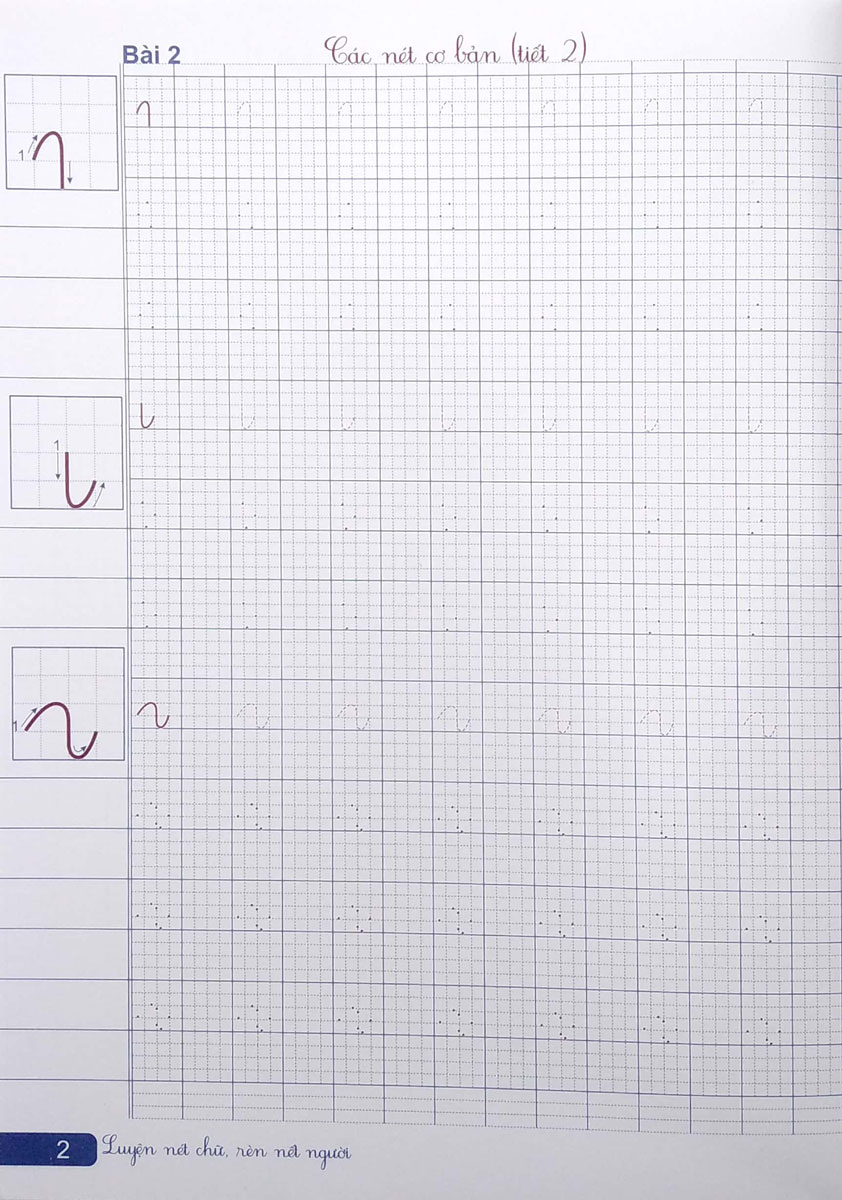 Bài 2
Các nét cơ bản (tiết 2)
1
1
1
2
Luyện nét chữ, rèn nết người